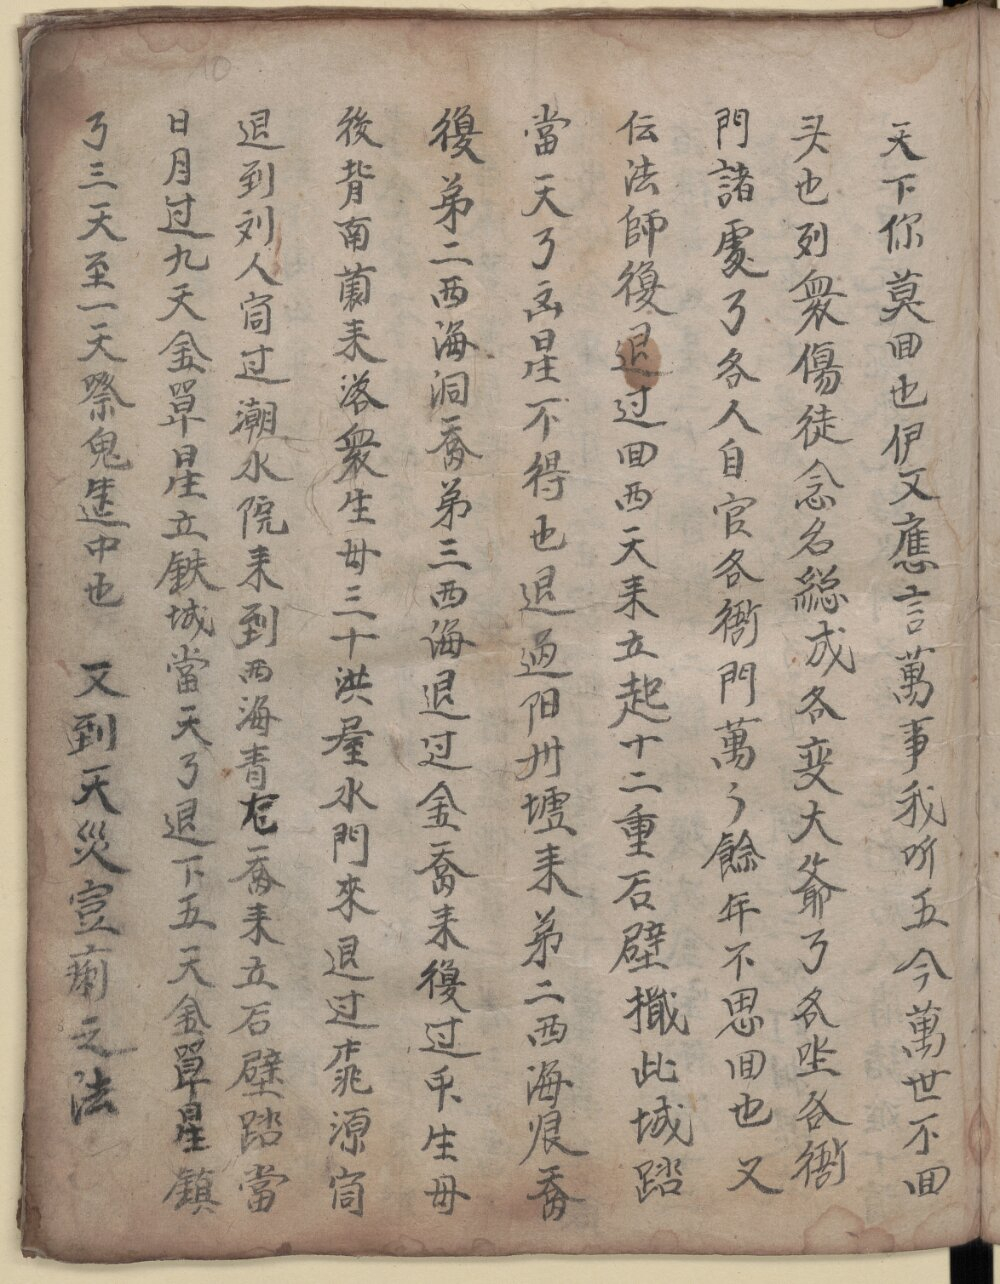 天下你莫回也伊又應言萬事我听五今萬世不回
头也列衆傷徒念名總成各变大爺了各坐各衙
門諸處了各人自官各衙門萬々餘年不思回也又
伝法師復退过回西天耒立起十二重石壁攕此城踏
當天了凶星不得也退過阳州壚耒弟二西海恨喬
復弟二西海洞喬弟三西海退过金喬耒復过生毋
後背南蘭耒落衆生毋三十洪屋水門來退过源
退到刘人过潮水院耒到西海青喬耒立石壁踏當
日月过九天金單星立鉄城當天了退下五天金單星鎮
了三天至一天祭鬼進中也 又到天災荳痢之法
10